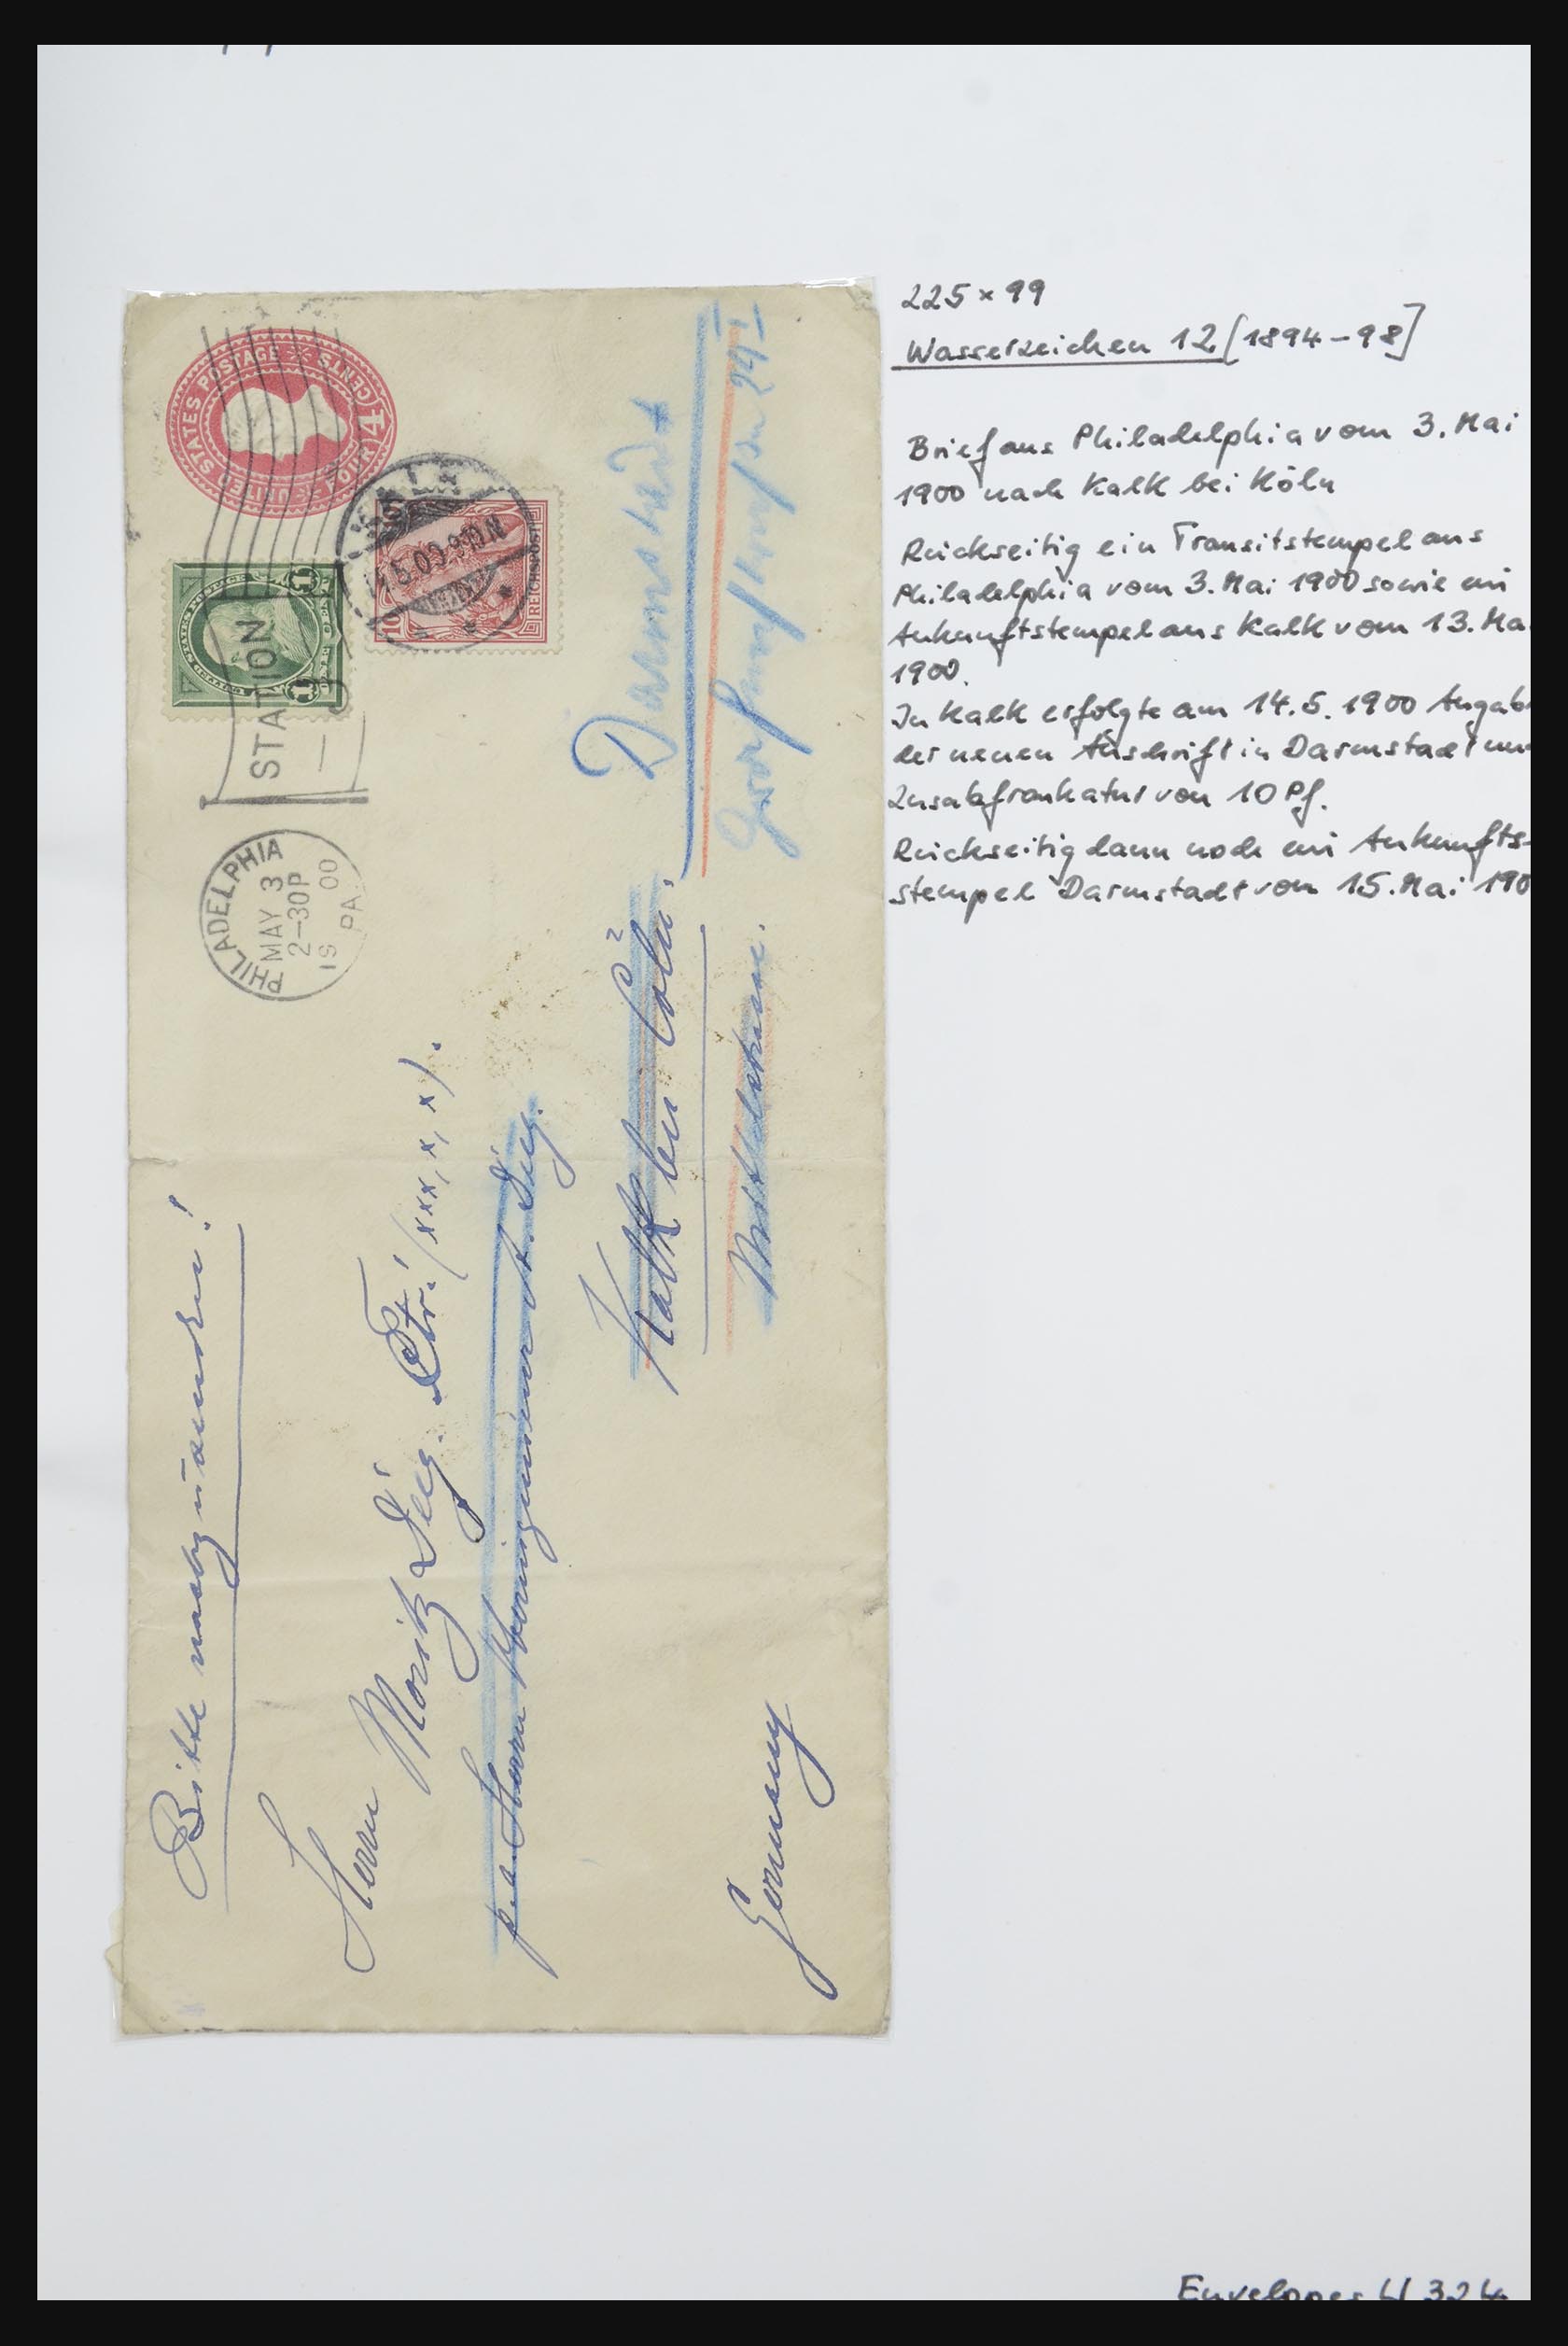 225 x 99
Wasserzeichen 12 [1894-98]
Brief aus Philadelphia vom 3. Mai
1900 nach Kalk bei Köln
Rückseitig ein Transitstempel aus
Philadelphia vom 3. Mai 1900 sowie ein
Ankunftstempel aus Kalk vom 13. Ma
1900.
In Kalk erfolgte am 14.5.1900 Angab
der neuen Anschrift in Darmstadt un
Zusatzfrankatur von 10 Pf.
Rückseitig dann noch ein Ankunfts-
stempel Darmstadt von 15. Mai 190
UNITED STATES POSTAGE
FOUR (4) CENTS
1 1
REICHSPOST
10
KALK
5.00 9-10 N
STATION
PHILADELPHIA
MAY 3
2-30P
19 00
PA.
Bitte nachzusenden!
Herrn Moritz
(xxx, x, x).
p. a. Herrn
Kalk bei Cöln.
Germany
Darmstadt
Envelopes U 324